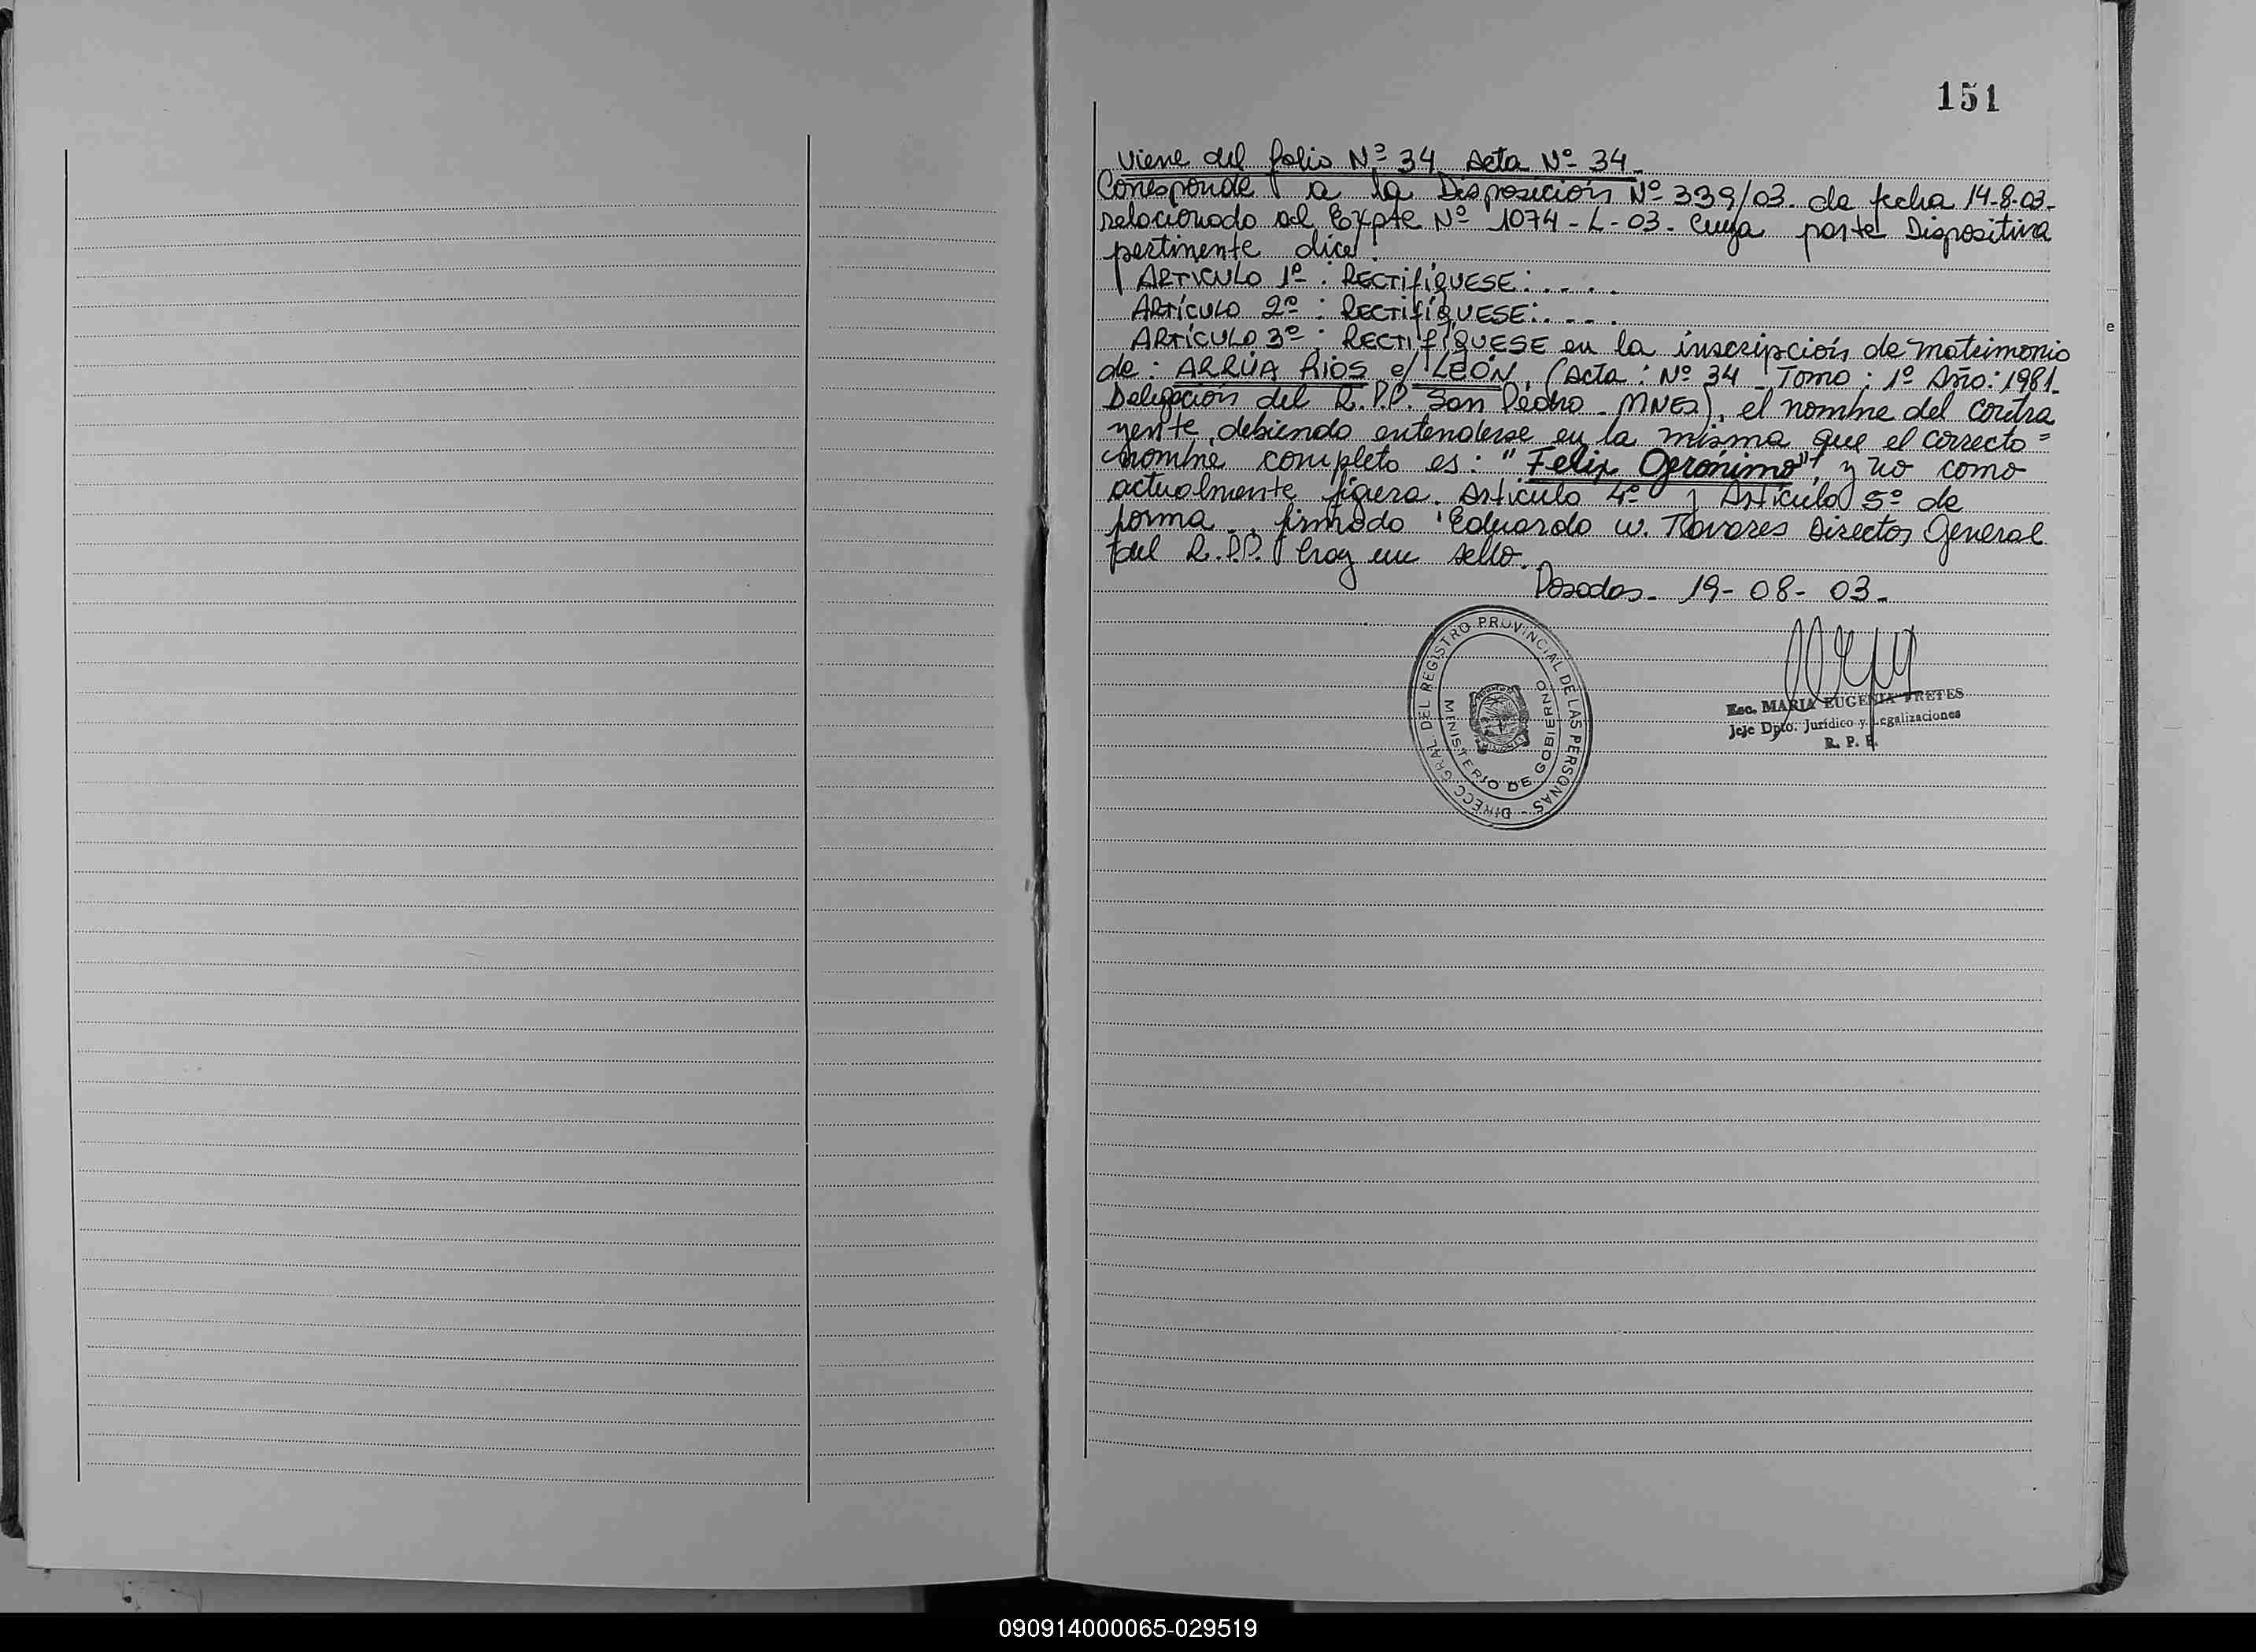 151
Viene del folio Nº 34 Acta Nº 34.
Corresponde a la Disposición Nº 339/03. de fecha 14-8-03.
relacionado al Expte Nº 1074-L-03. Cuya parte Dispositiva
pertinente dice:
ARTICULO 1º: RECTIFÍQUESE:.....
ARTÍCULO 2º: RECTIFÍQUESE:.....
ARTÍCULO 3º: RECTIFÍQUESE en la inscripción de matrimonio
de: ARRÚA RIOS c/ LEÓN, (Acta: Nº 34 - Tomo: 1º Año: 1981.
Delegación del R.P.P. San Pedro - MNES), el nombre del contra
yente, debiendo entenderse en la misma que el correcto =
nombre completo es: "Felix Gerónimo", y no como
actualmente figura. Artículo 4º y Artículo 5º de
forma., firmado Eduardo W. Tavares Director General
del R.P.P. hay un sello.
Posadas. 19-08-03.
DIRECC. GRAL DEL REGISTRO PROVINCIAL DE LAS PERSONAS -
MINISTERIO DE GOBIERNO
Esc. MARIA EUGENIA FRETES
Jefe Dpto. Jurídico y Legalizaciones
R. P. P.
e
090914000065-029519